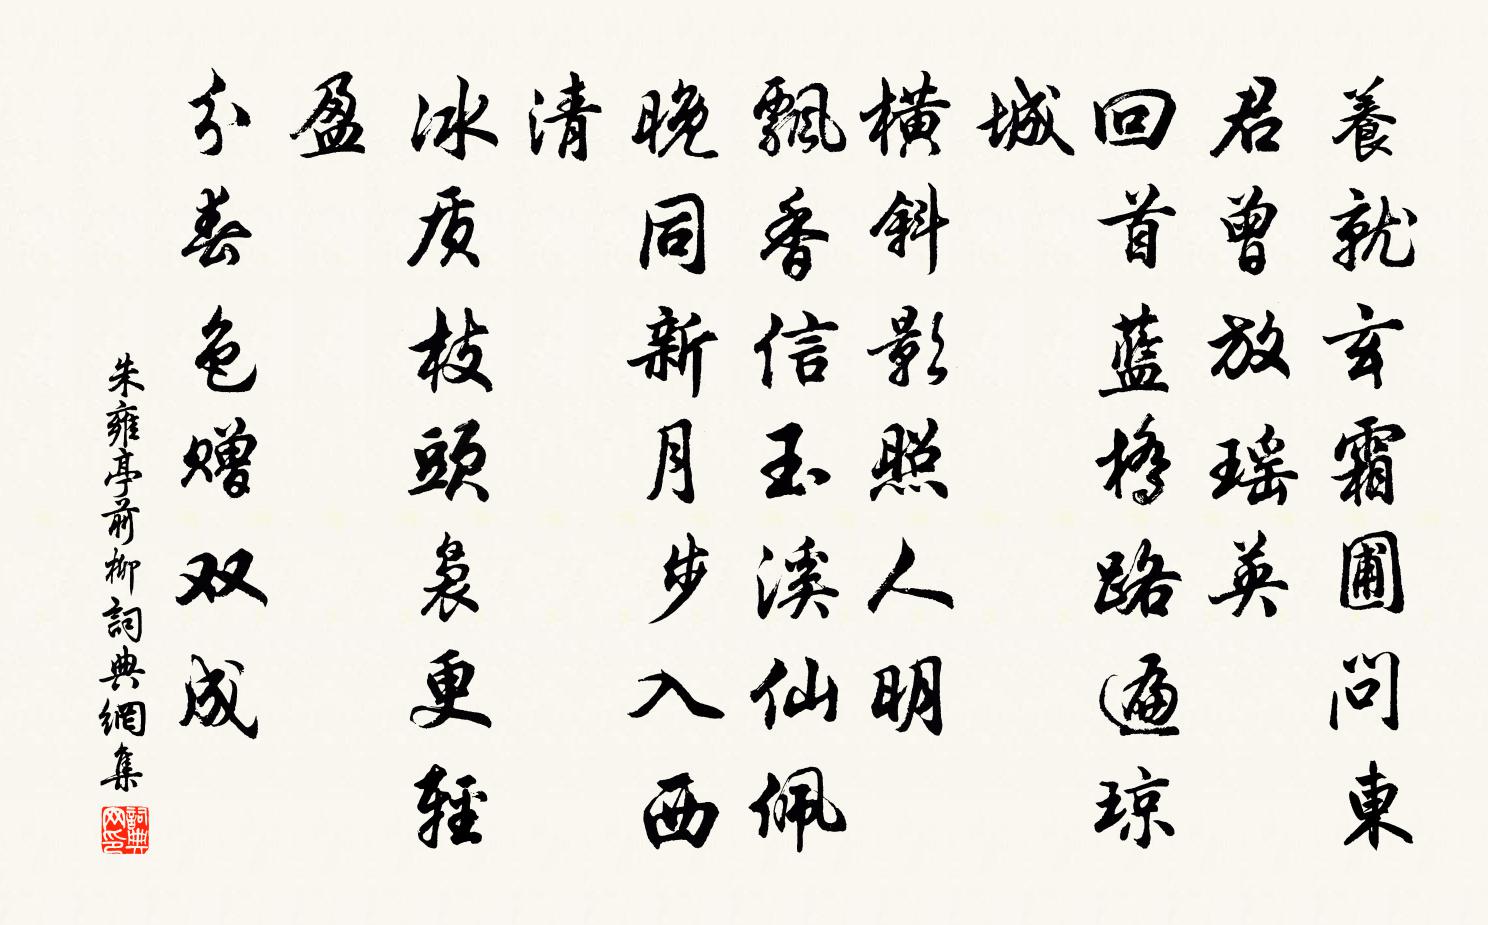 養就玄霜圃問東
君曾放瑶英
回首藍橋路遍琼
城
橫斜影照人明
飄香信玉溪仙佩
晚同新月步入西
清
冰质枝頭裊更輕
盈
分春色赠双成
朱雍亭前柳詞典網集
詞典网印